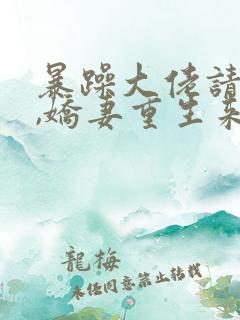 暴躁大佬請
,嬌妻重生來
龍梅
未經同意禁止轉載